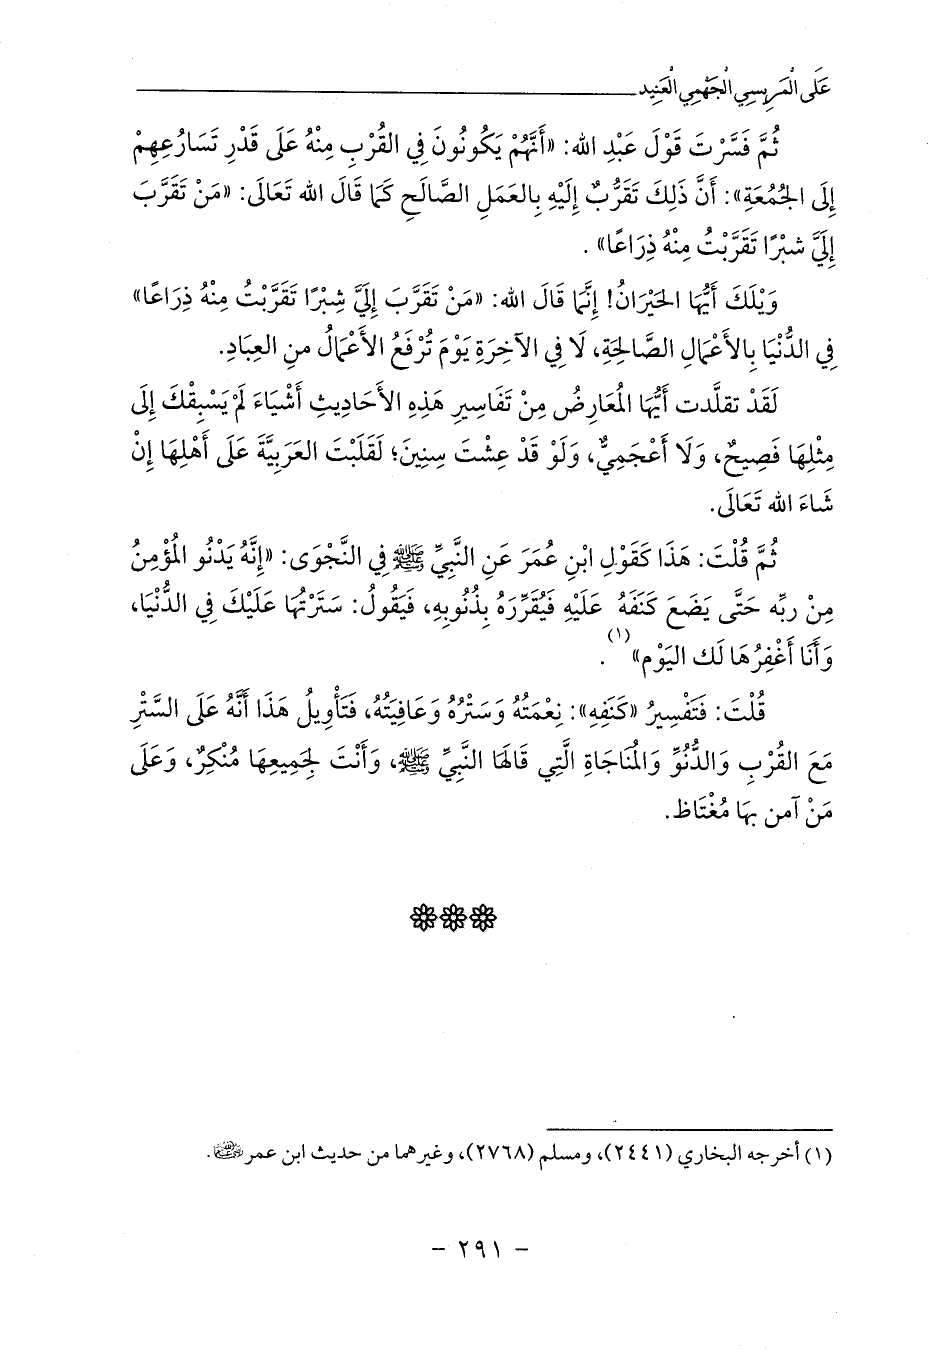 عَلَى الْمَرِيسِي الْجَهْمِي الْعَنِيد
ثُمَّ فَسَّرْتَ قَوْلَ عَبْدِ الله: «أَنَّهُمْ يَكُونُونَ فِي القُرْبِ مِنْهُ عَلَى قَدْرِ تَسَارُعِهِمْ
إِلَى الجُمُعَةِ»: أَنَّ ذَلِكَ تَقَرُّبٌ إِلَيْهِ بِالعَمَلِ الصَّالَحِ كَمَا قَالَ الله تَعَالَى: «مَنْ تَقَرَّبَ
إِلَيَّ شبْرًا تَقَرَّبْتُ مِنْهُ ذِرَاعًا» .
وَيْلَكَ أَيُّهَا الحَيْرَانُ! إِنَّمَا قَالَ الله: «مَنْ تَقَرَّبَ إِلَيَّ شِبْرًا تَقَرَّبْتُ مِنْهُ ذِرَاعًا»
فِي الدُّنْيَا بِالأَعْمَالِ الصَّالِحَةِ، لَا فِي الآخِرَةِ يَوْمَ تُرْفَعُ الأَعْمَالُ منِ العِبَادِ.
لَقَدْ تقلَّدت أَيُّهَا المُعَارِضُ مِنْ تَفَاسِيرِ هَذِهِ الأَحَادِيثِ أَشْيَاءَ لَمْ يَسْبِقْكَ إِلَى
مِثْلِهَا فَصِيحٌ، وَلَا أَعْجَمِيٌّ، وَلَوْ قَدْ عِشْتَ سِنِينَ؛ لَقَلَبْتَ العَرَبِيَّةَ عَلَى أَهْلِهَا إِنْ
شَاءَ الله تَعَالَى.
ثُمَّ قُلْتَ: هَذَا كَقَوْلِ ابْنِ عُمَرَ عَنِ النَّبِيِّ ﷺ فِي النَّجْوَى: «إِنَّهُ يَدْنُو المُؤْمِنُ
مِنْ ربِّه حَتَّى يَضَعَ كَنَفَهُ عَلَيْهِ فَيُقَرِّرَهُ بِذُنُوبِهِ، فَيَقُولُ: سَتَرْتُهَا عَلَيْكَ فِي الدُّنْيَا،
وَأَنَا أَغْفِرُهَا لَك اليَوْم» (١) .
قُلْتَ: فَتَفْسِيرُ «كَنَفِهِ»: نِعْمَتُهُ وَسَتْرُهُ وَعَافِيَتُهُ، فَتَأْوِيلُ هَذَا أَنَّهُ عَلَى السَّتْرِ
مَعَ القُرْبِ وَالدُّنُوِّ وَالمُنَاجَاةِ الَّتِي قَالَهَا النَّبِيِّ ﷺ، وَأَنْتَ لِجَمِيعِهَا مُنْكِرٌ، وَعَلَى
مَنْ آمن بِهَا مُغْتَاظ.
(١) أخرجه البخاري (٢٤٤١)، ومسلم (٢٧٦٨)، وغيرهما من حديث ابن عمر.
- ٢٩١ -